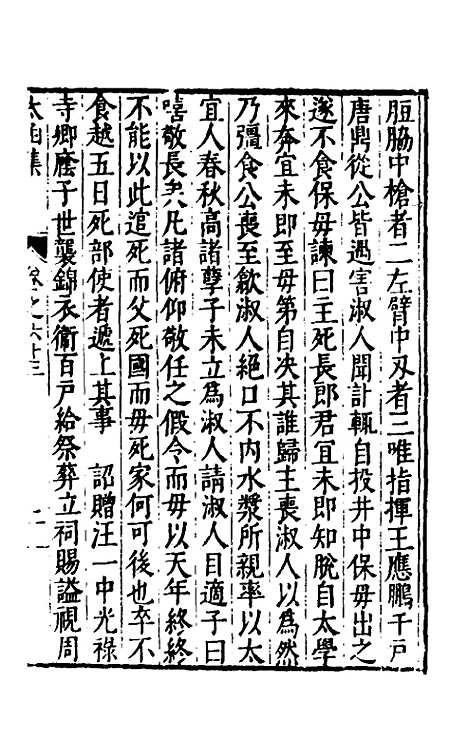 脰脇中槍者二左臂中刃者三唯指揮王應鵬千戸
唐鼎從公皆遇害淑人聞訃輒自投井中保毋出之
遂不食保毋諫曰主死長郎君宜未即知脫自太學
來奔宜未即至毋第自决其誰歸主喪淑人以為然
乃彊食公喪至歛淑人絕口不内水漿所親率以太
宜人春秋高諸孽子未立為淑人請淑人目適子曰
嘻敬長矣凡諸俯仰敬任之假令而毋以天年終終
不能以此逭死而父死國而毋死家何可後也卒不
食越五日死部使者遞上其事 詔贈汪一中光祿
寺卿廕子世襲錦衣衞百戸給祭葬立祠賜謚視周
太函集
卷之六十三
二